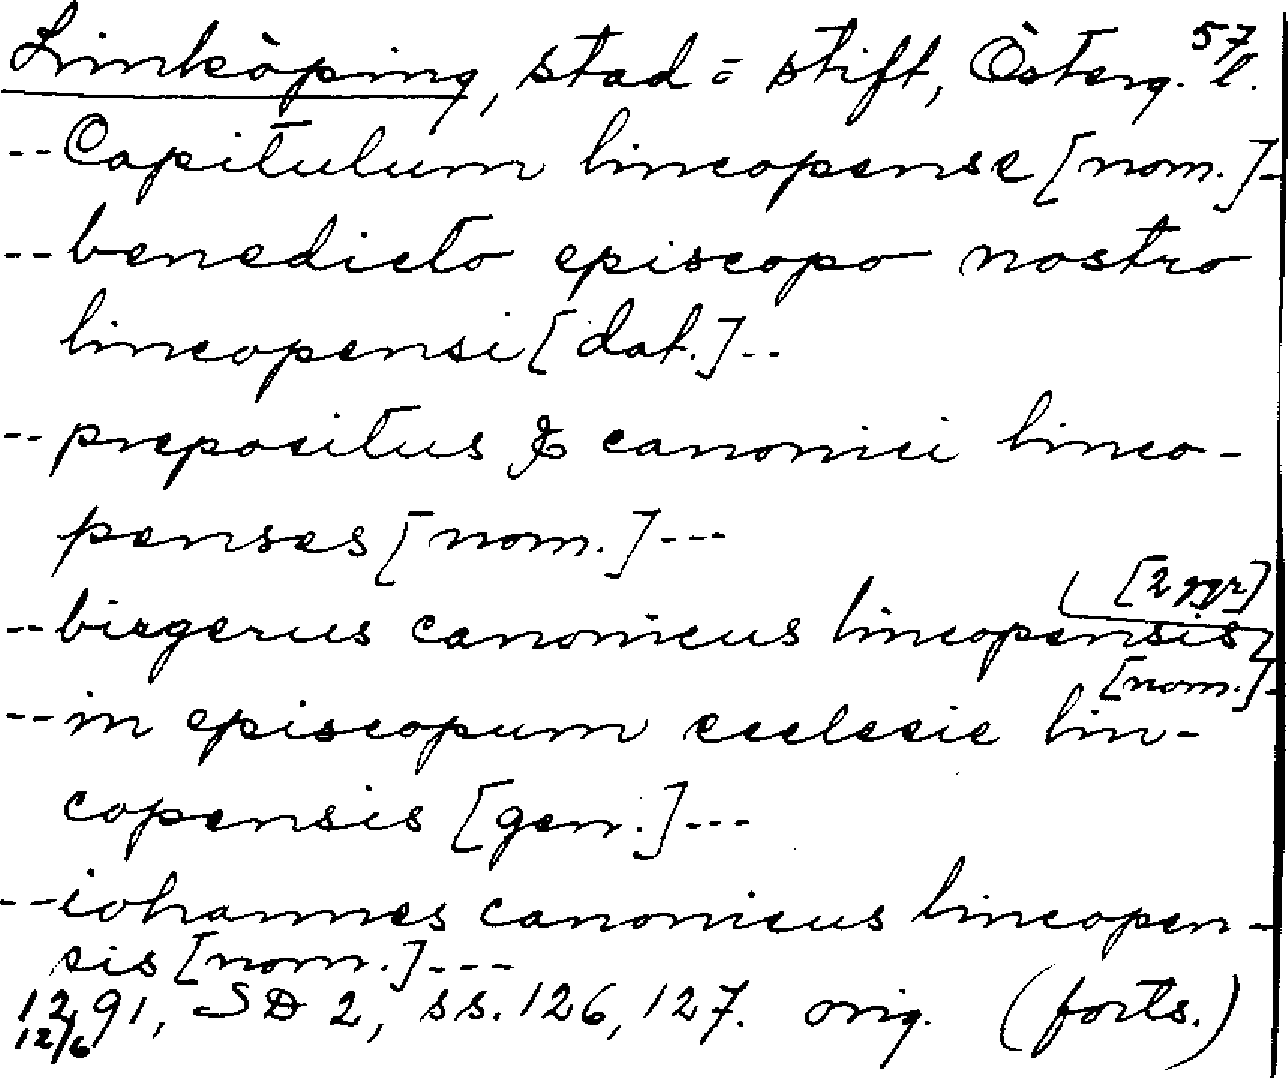 Linköping, stad = stift, Österg. 57 l.
-- Capitulum lincopense [nom.] -
-- benedicto episcopo nostro
lincopensi [dat.] --
-- prepositus & canonici linco-
penses [nom.] ---
[2 ggr]
-- birgerus canonicus lincopensis
[nom.] -
-- in episcopum ecclesie lin-
copensis [gen.] ---
-- iohannes canonicus lincopen-
sis [nom.] ----
1291, SD 2, ss. 126, 127. orig. (forts.)
12/6